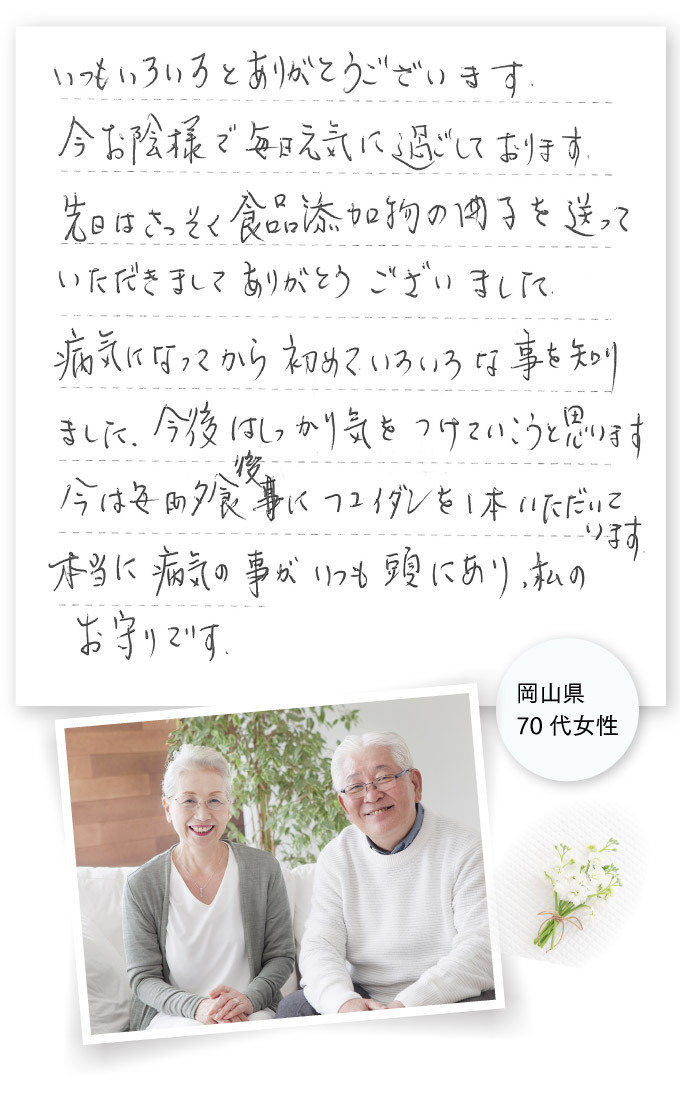 いつもいろいろとありがとうございます.
今お陰様で毎日元気に過ごしております.
先日はさっそく食品添加物の冊子を送って
いただきましてありがとうございました.
病気になってから初めていろいろな事を知り
ました、今後はしっかり気をつけていこうと思います
今は毎日夕食後にフコイダンを1本いただいて
います.
本当に病気の事がいつも頭にあり、私の
お守りです.
岡山県
70代女性